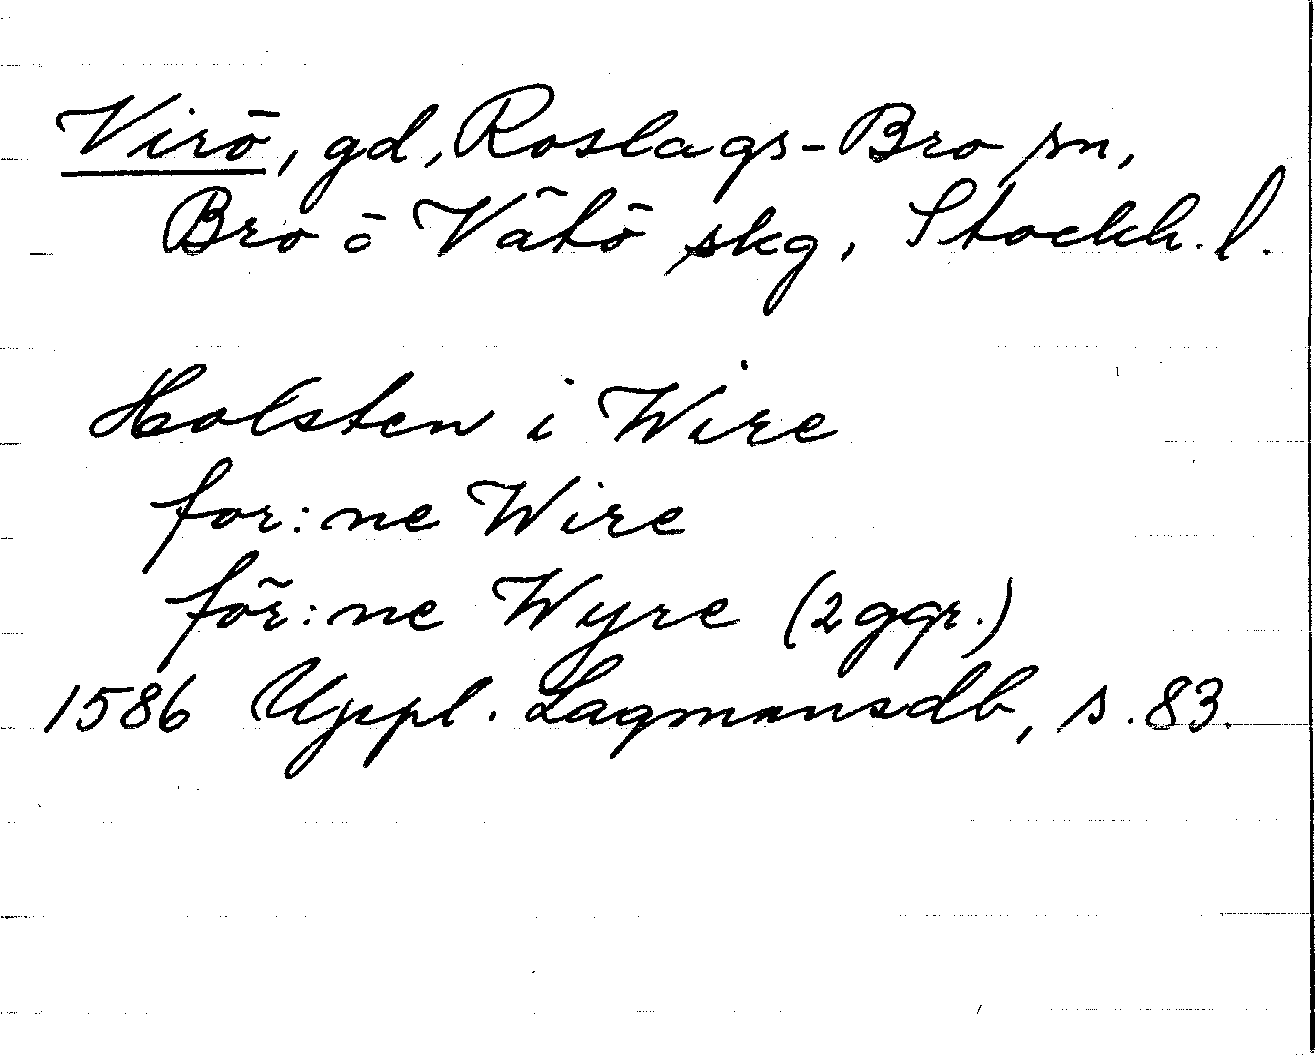 Virö, gd, Roslags-Bro sn,
Bro o Vätö skg, Stockh. l.
Holsten i Wire
for:ne Wire
för:ne Wyre (2 ggr.)
1586 Uppl. Lagmansdb, s. 83.